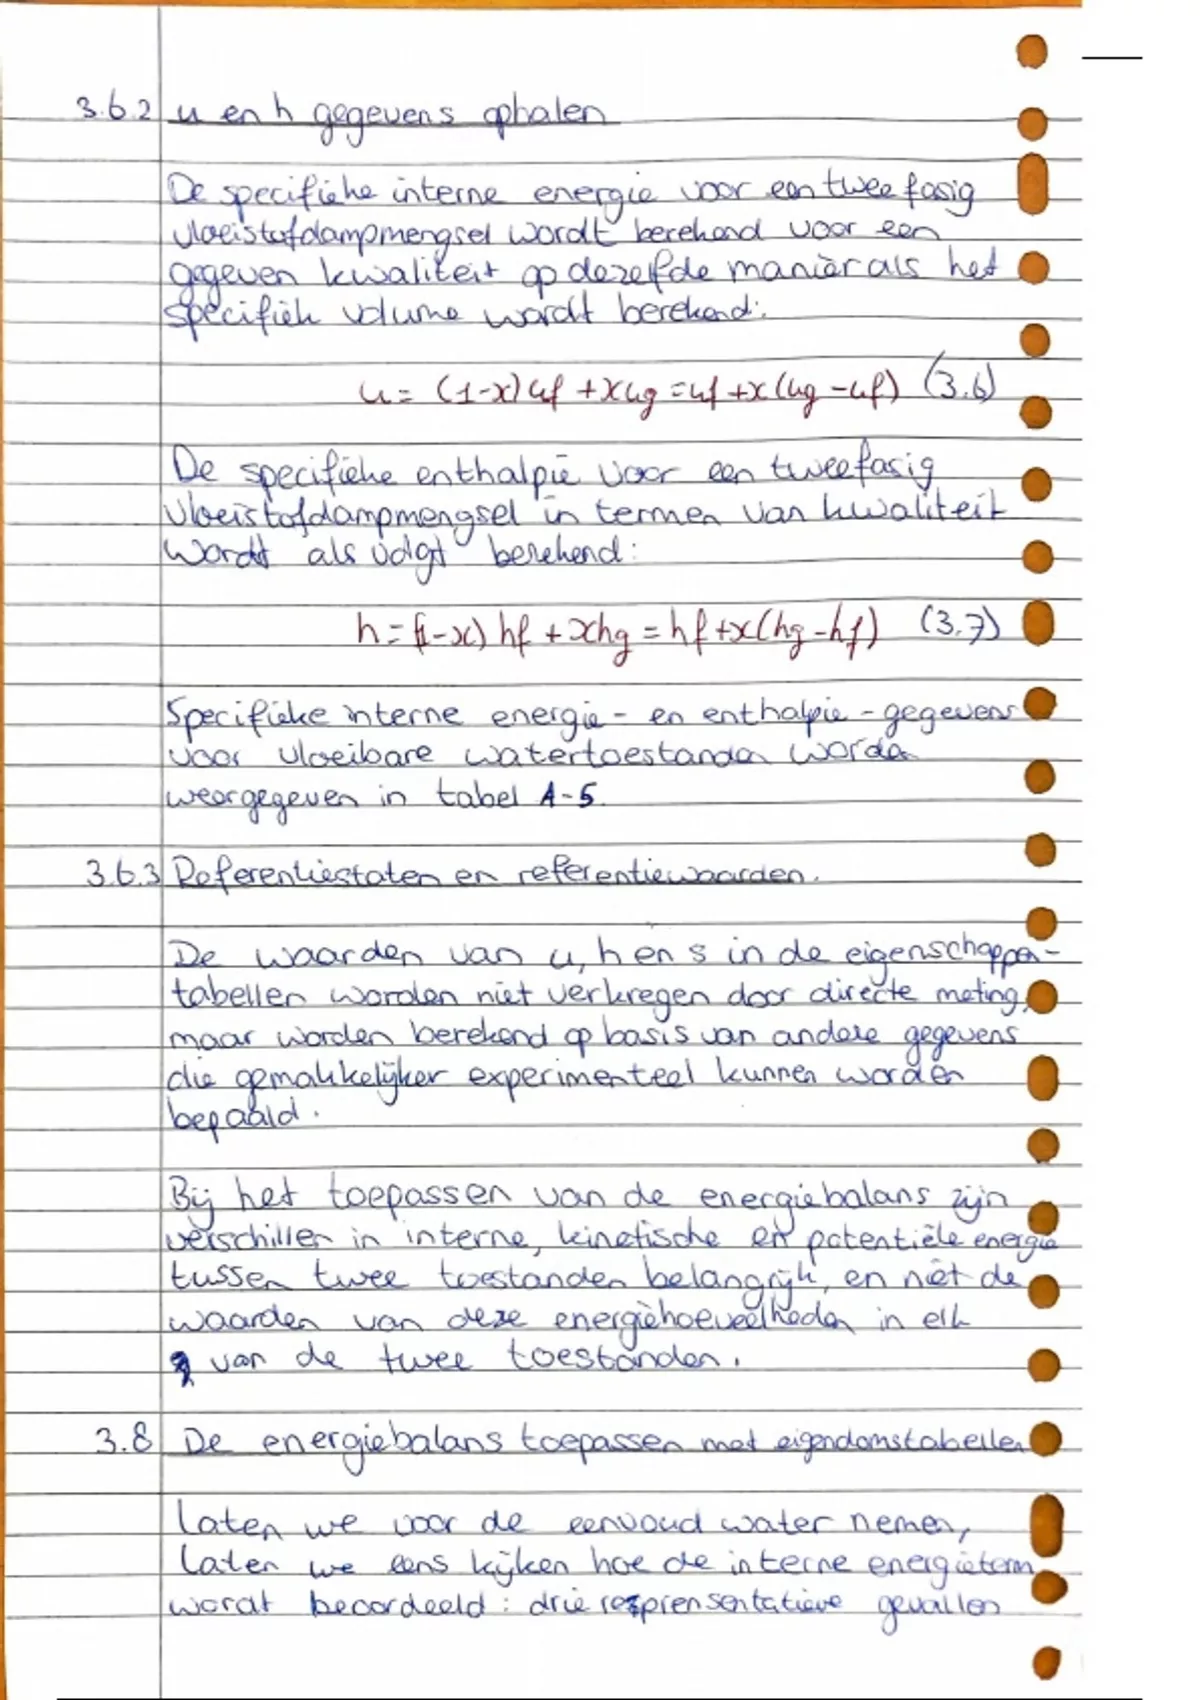 3.6.2 u en h gegevens ophalen
De specifieke interne energie voor een twee fasig
vloeistofdampmengsel wordt berekend voor een
gegeven kwaliteit op dezelfde manier als het
specifiek volume wordt berekend:
u = (1-x) uf + xug = uf + x (ug - uf) (3.6)
De specifieke enthalpie voor een tweefasig
vloeistofdampmengsel in termen van kwaliteit
wordt als volgt berekend:
h = (1-x) hf + xhg = hf + x(hg - hf) (3.7)
Specifieke interne energie- en enthalpie-gegevens
voor vloeibare watertoestanden worden
weergegeven in tabel A-5.
3.6.3 Referentiestaten en referentiewaarden.
De waarden van u, h en s in de eigenschappen-
tabellen worden niet verkregen door directe meting,
maar worden berekend op basis van andere gegevens
die gemakkelijker experimenteel kunnen worden
bepaald.
Bij het toepassen van de energiebalans zijn
verschillen in interne, kinetische en potentiële energie
tussen twee toestanden belangrijk, en niet de
waarden van deze energiehoeveelheden in elk
van de twee toestanden.
3.8 De energiebalans toepassen met eigendomstabellen
Laten we voor de eenvoud water nemen,
Laten we eens kijken hoe de interne energieterm
wordt beoordeeld: drie resprensentatieve gevallen